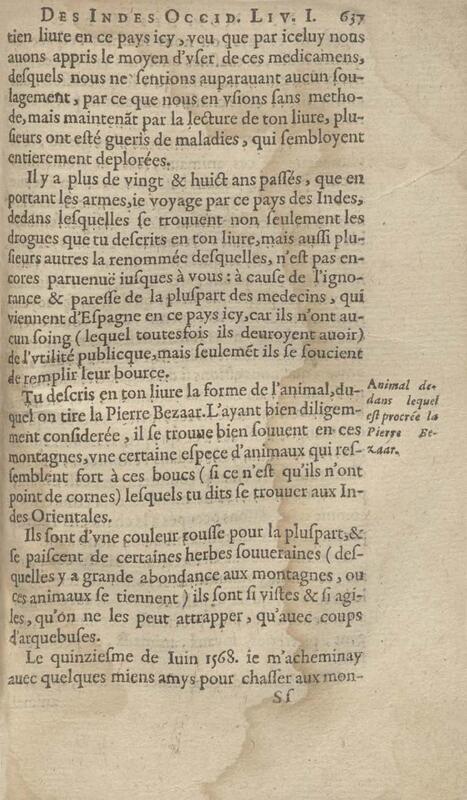 DES INDES OCCID. LIV. I. 637
tien liure en ce pays icy, veu que par iceluy nous
auons appris le moyen d'vser de ces medicamens,
desquels nous ne sentions auparauant aucun sou-
lagement, par ce que nous en vsions sans metho-
de, mais maintenãt par la lecture de ton liure, plu-
sieurs ont esté gueris de maladies, qui sembloyent
entierement deplorées.
Il y a plus de vingt & huict ans passés, que en
portant les armes, ie voyage par ce pays des Indes,
dedans lesquelles se trouuent non seulement les
drogues que tu descrits en ton liure, mais aussi plu-
sieurs autres la renommée desquelles, n'est pas en-
cores paruenuë iusques à vous: à cause de l'igno-
rance & paresse de la pluspart des medecins, qui
viennent d'Espagne en ce pays icy, car ils n'ont au-
cun soing (lequel toutesfois ils deuroyent auoir)
de l'vtilité publicque, mais seulemẽt ils se soucient
de remplir leur bource.
Tu descris en ton liure la forme de l'animal, du-
quel on tire la Pierre Bezaar. L'ayant bien diligem-
ment considerée, il se trouue bien souuent en ces
montagnes, vne certaine espece d'animaux qui res-
semblent fort à ces boucs (si ce n'est qu'ils n'ont
point de cornes) lesquels tu dits se trouuer aux In-
des Orientales.
Animal de-
dans lequel
est procrée la
Pierre Be-
zaar.
Ils sont d'vne couleur rousse pour la pluspart, &
se paiscent de certaines herbes souueraines (des-
quelles y a grande abondance aux montagnes, ou
ces animaux se tiennent) ils sont si vistes & si agi-
les, qu'on ne les peut attrapper, qu'auec coups
d'arquebuses.
Le quinziesme de Iuin 1568. ie m'acheminay
auec quelques miens amys pour chasser aux mon-
Sf